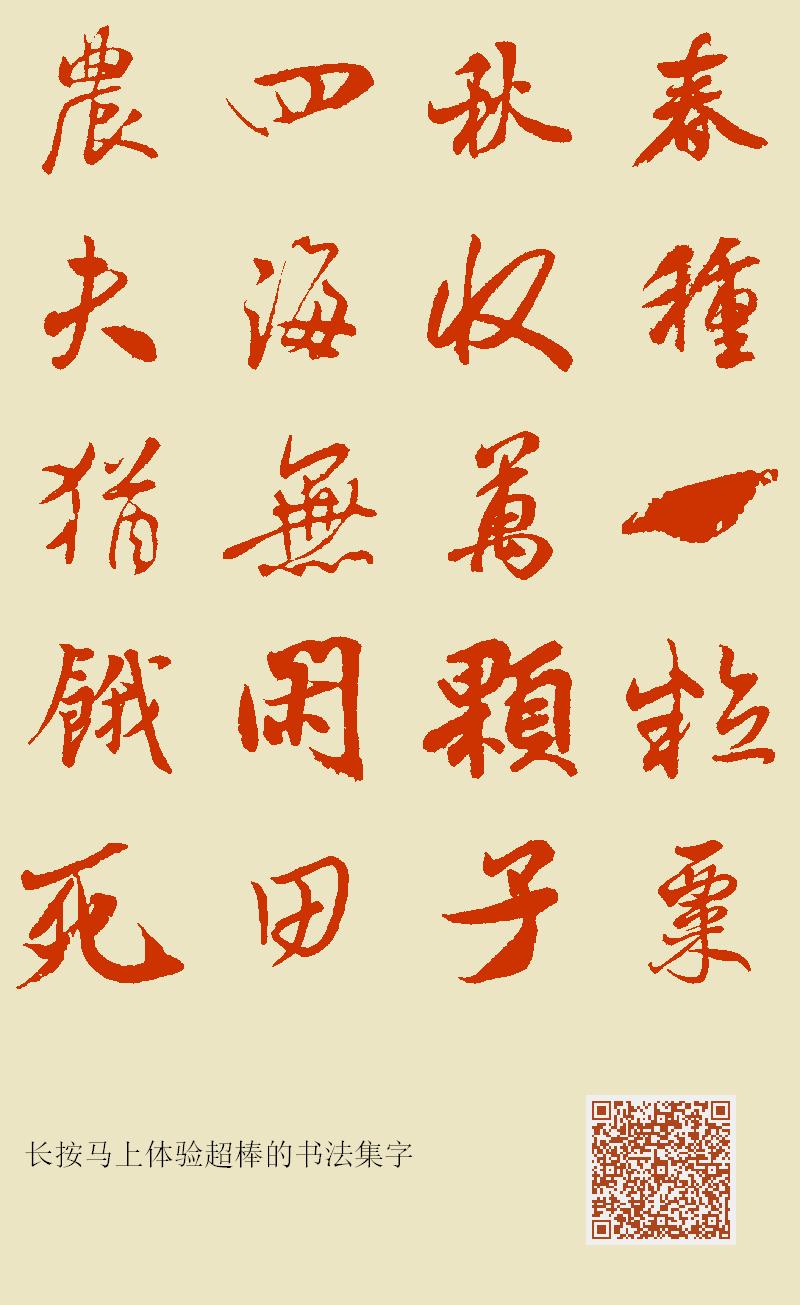 春種一粒粟
秋收萬顆子
四海無閑田
農夫猶餓死
长按马上体验超棒的书法集字